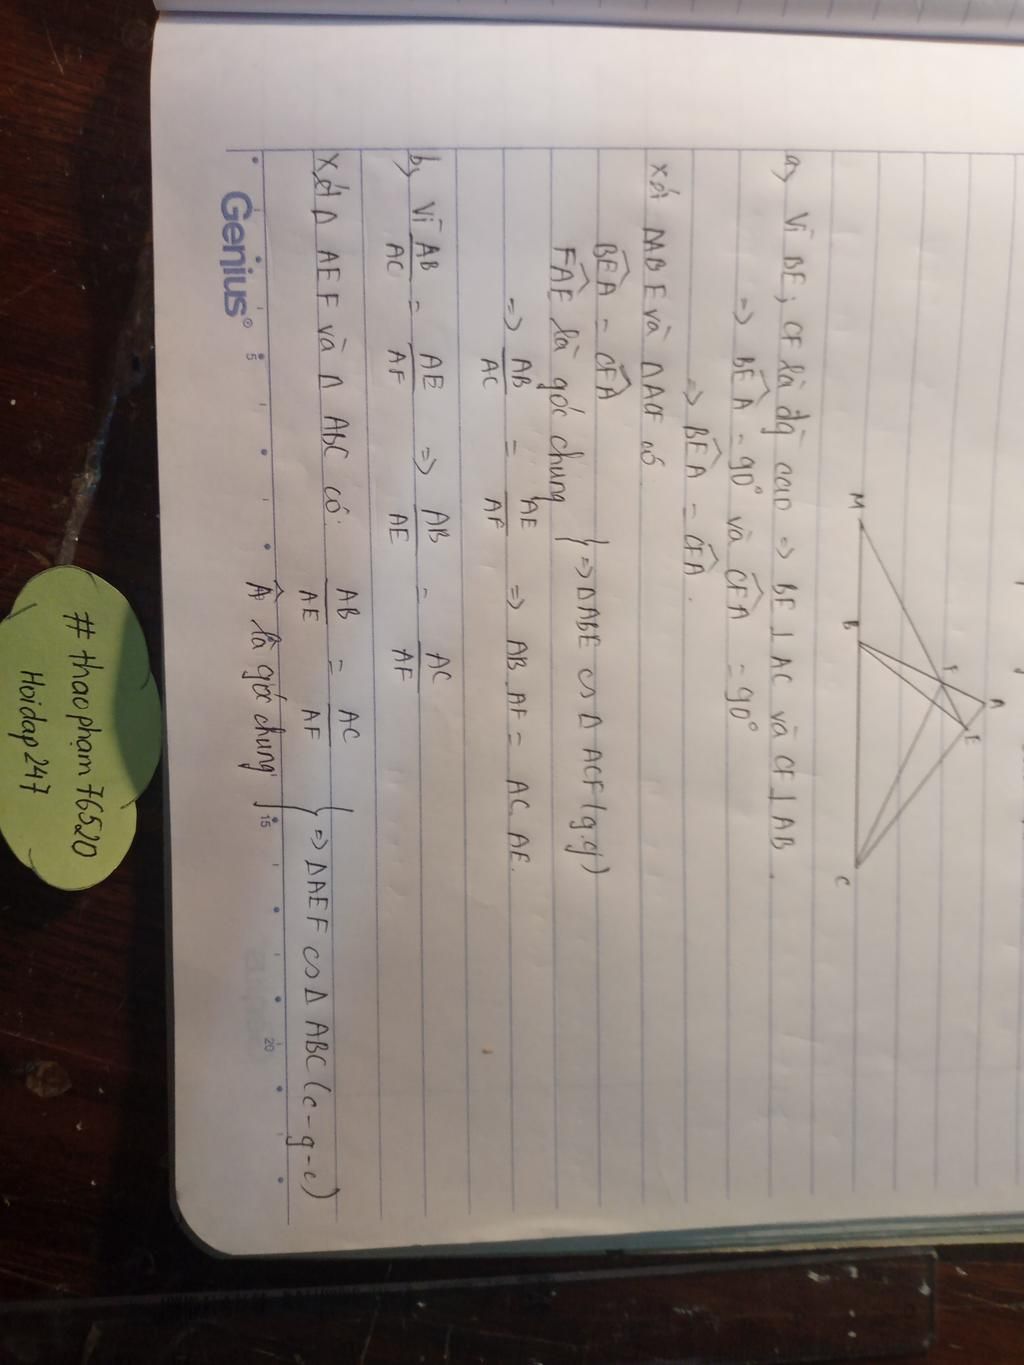 M
B
F
A
E
C
a) Vì BE, CF là đg cao => BE ⊥ AC và CF ⊥ AB.
=> BÊA = 90° và CFA = 90°
=> BÊA = CFA.
xét ΔABE và ΔACF có
BÊA = CFA
FAE là góc chung } => ΔABE ∽ Δ ACF (g.g)
=> AB/AC = AE/AF => AB.AF = AC.AE.
b) Vì AB/AC = AE/AF => AB/AE = AC/AF
xét Δ AEF và Δ ABC có: AB/AE = AC/AF
 là góc chung } => ΔAEF ∽ Δ ABC (c-g-c)
Genius®
5
15
20
# thaophạm76520
Hoidap247